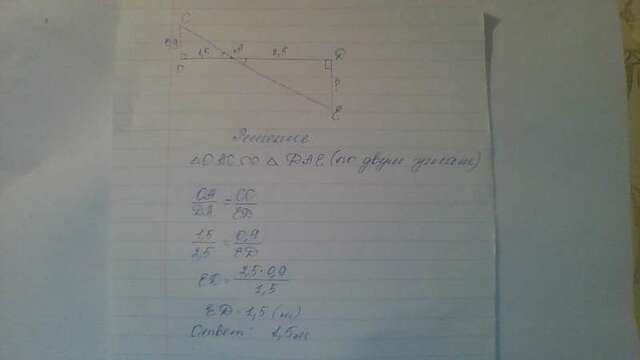 C
0,9
1,5 A 2,5 D
O
?
E
Решение
△OAC ∞ △DAE (по двум углам)
OA/DA = OC/ED
1,5/2,5 = 0,9/ED
ED = 2,5·0,9/1,5
ED = 1,5 (м)
Ответ: 1,5м